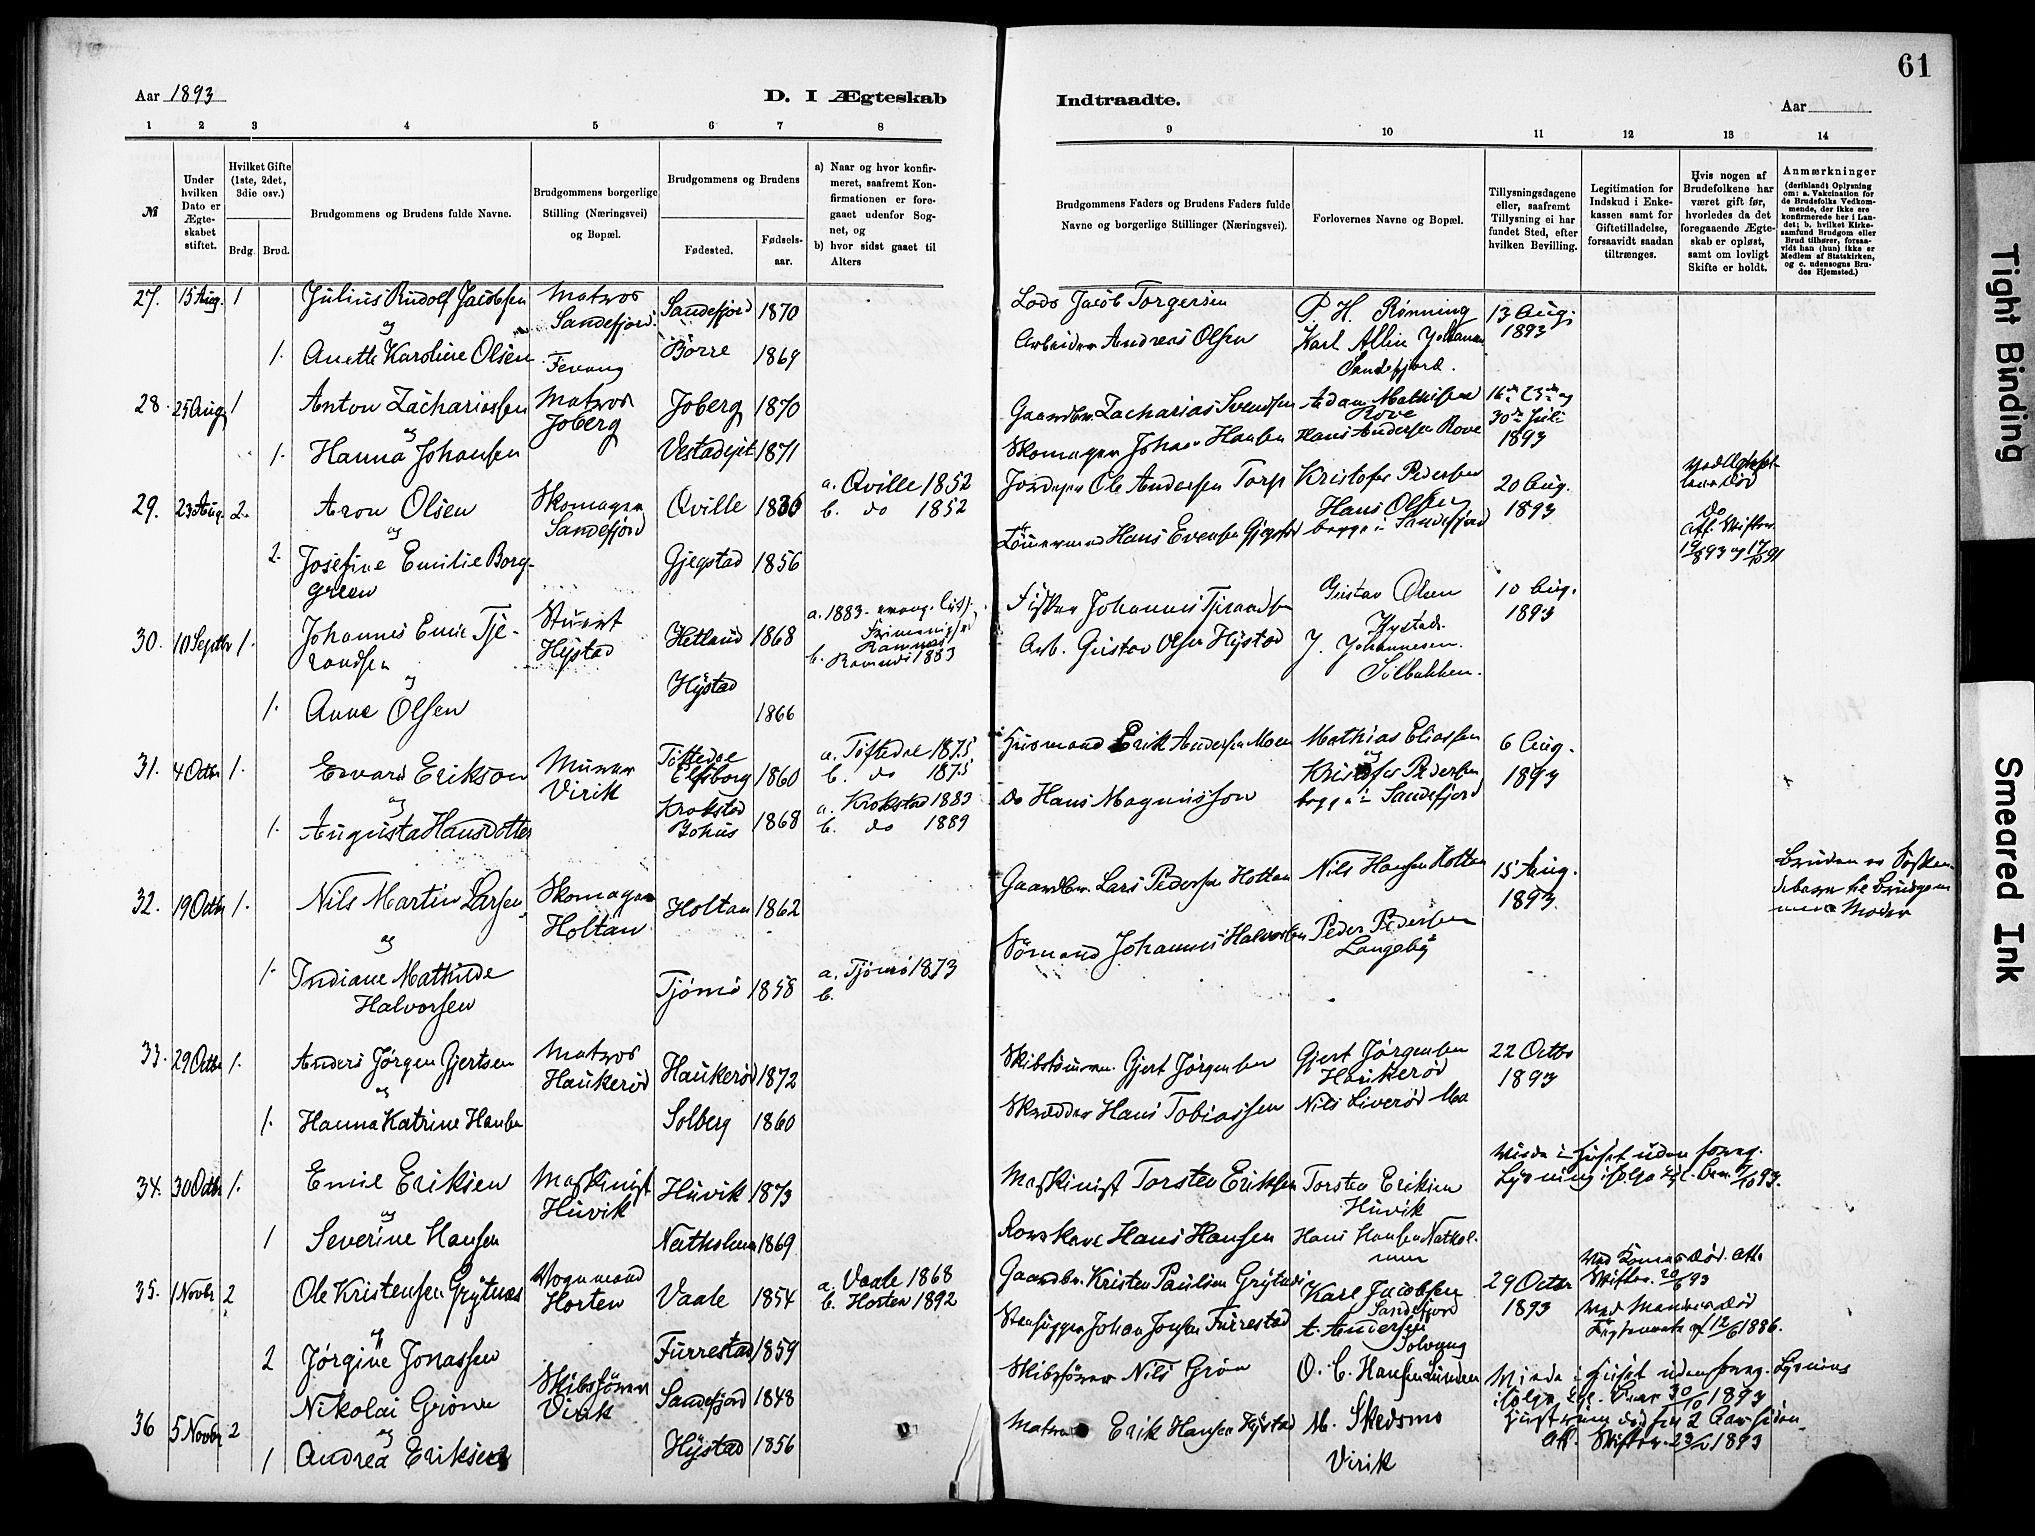 61
Aar 1893
D. I Ægteskab
Indtraadte.
Aar
1 2 3 4 5 6 7 8 9 10 11 12 13 14
№
Under hvilken Dato er Ægteskabet stiftet.
Hvilket Gifte (1ste, 2det, 3die osv.)
Brdg. Brud.
Brudgommens og Brudens fulde Navne.
Brudgommens borgerlige Stilling (Næringsvei) og Bopæl.
Brudgommens og Brudens
Fødested.
Fødsels-aar.
a) Naar og hvor konfir-
meret, saafremt Kon-
firmationen er fore-
gaaet udenfor Sog-
net, og
b) hvor sidst gaaet til
Alters
Brudgommens Faders og Brudens Faders fulde
Navne og borgerlige Stillinger (Næringsvei).
Forlovernes Navne og Bopæl.
Tillysningsdagene
eller, saafremt
Tillysning ei har
fundet Sted, efter
hvilken Bevilling.
Legitimation for
Indskud i Enke-
kassen samt for
Giftetilladelse,
forsaavidt saadan
tiltrænges.
Hvis nogen af
Brudefolkene har
været gift før,
hvorledes da det
foregaaende Ægte-
skab er opløst,
samt om lovligt
Skifte er holdt.
Anmærkninger
(deriblandt Oplysning
om: a. Vakcination for
de Brudefolks Vedkom-
mende, der ikke ere
konfirmerede her i Lan-
det; b. hvilket Kirke-
samfund Brudgom eller
Brud tilhører, forsaa-
vidt han (hun) ikke er
Medlem af Statskirken,
og c. udensogns Bru-
des Hjemsted.)
27. 15 Aug. 1 Julius Rudolf Jacobsen Matros Sandefjord Sandefjord 1870 Lods Jacob Torgersen P. H. Rønning 13 Aug. 1893
og
1. Anette Karoline Olsen Fevang Borre 1869 Arbeider Andreas Olsen Karl Allin Johann Sandefjord.
28. 25 Aug 1 Anton Zachariassen Matros Joberg Joberg 1870 Gaardbr. Zacharias Svendsen Adam Mathisen Rove 16de 23de og 30te Juli 1893
og
1. Hanna Johansen 1871 Skomager Johan Hansen Hans Andersen Rove
29. 23 Aug. 2. Aron Olsen Skomager Sandefjord Qville 1836 a. Qville 1852 b. do 1852 Ole Andersen Torp Kristofer Pedersen 20 Aug. 1893
og
2. Josefine Emilie Borg-
green Gjegstad 1856 Hans Evensen Gjegstad Hans Olsen begge i Sandefjord do
30. 10 Septbr 1. Johannes Emil Tje-
randsen Stuert Hystad Hetland 1868 a. 1883 evang. luth. Frimenighed b. 1883 Fisker Johannes Tjerandsen Gustav Olsen Hystad 10 Aug. 1893
og
1. Anne Olsen Hystad 1866 Arb. Gustav Olsen Hystad J. Johannesen
31. 4 Octbr 1. Edvard Erikson Murer Virik Töftedal Elfsborg 1860 a. Töftedal 1875 b. do 1875 Husmand Erik Andersen Moen Mathias Eliassen 6 Aug. 1893
og
1. Augusta Hansdotter Krokstad Bohus 1868 a. Krokstad 1883 b. do 1889 do Hans Magnusson Kristofer Pedersen begge i Sandefjord
32. 19 Octbr 1. Nils Martin Larsen Skomager Holtan Holtan 1862 Gaardbr. Lars Pedersen Holtan Nils Hansen Holtan 15 Aug. 1893 Bruden er Søsken-
debarn til Brudgom-
mens Moder
og
1. Indiane Mathilde
Halvorsen Tjømø 1858 a. Tjømø 1873 b. Sømand Johannes Halvorsen Peder Pedersen Langeby
33. 29 Octbr 1. Anders Jørgen Gjertsen Matros Haukerød Haukerød 1872 Skibstømm. Gjert Jørgensen Gjert Jørgensen Haukerød 22 Octbr 1893
og
1. Hanna Katrine Hansen Solberg 1860 Skrædder Hans Tobiassen Nils Liverød Mo
34. 30 Octbr 1. Emil Eriksen Maskinist Huvik Huvik 1873 Maskinist Torsten Eriksen Torsten Eriksen Huvik Viede i Huset uden foreg. Lysning ifølge kgl. Bev. 93.
og
1 Severine Hansen Natholmen 1869 Hans Hansen Hans Hansen Nathol-
men
35. 1 Novbr 2 Ole Kristensen Grytnes Vognmand Horten Vaale 1854 a. Vaale 1868 b. Horten 1892 Gaardbr. Kristen Paulsen Grytnes Karl Jacobsen Sandefjord 29 Octbr 1893 Ved Konas Død. Att. Skifter. 93
og
2 Jørgine Jonassen Furrestad 1859 Stenhugger Johan Jonsen Furrestad A. Andersen Solvang Ved Mandens Død 12/6 1886.
36 5 Novbr 2 Nikolai Grønn Skibsfører Virik Sandefjord 1848 Skibsfører Nils Grøn O. C. Hansen Lunden Viede i Huset uden foreg. Lysning ifølge kgl. Bev. 30/10 1893
og
1 Andrea Eriksen Hystad 1856 Matros Erik Hansen Hystad M. Skedsmo Virik Hustruen død for 2 Aar siden. Att. Skifter. 1893
Tight Binding
Smeared Ink